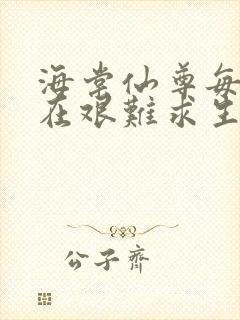 海棠仙尊每
在艰難求生
公子齊